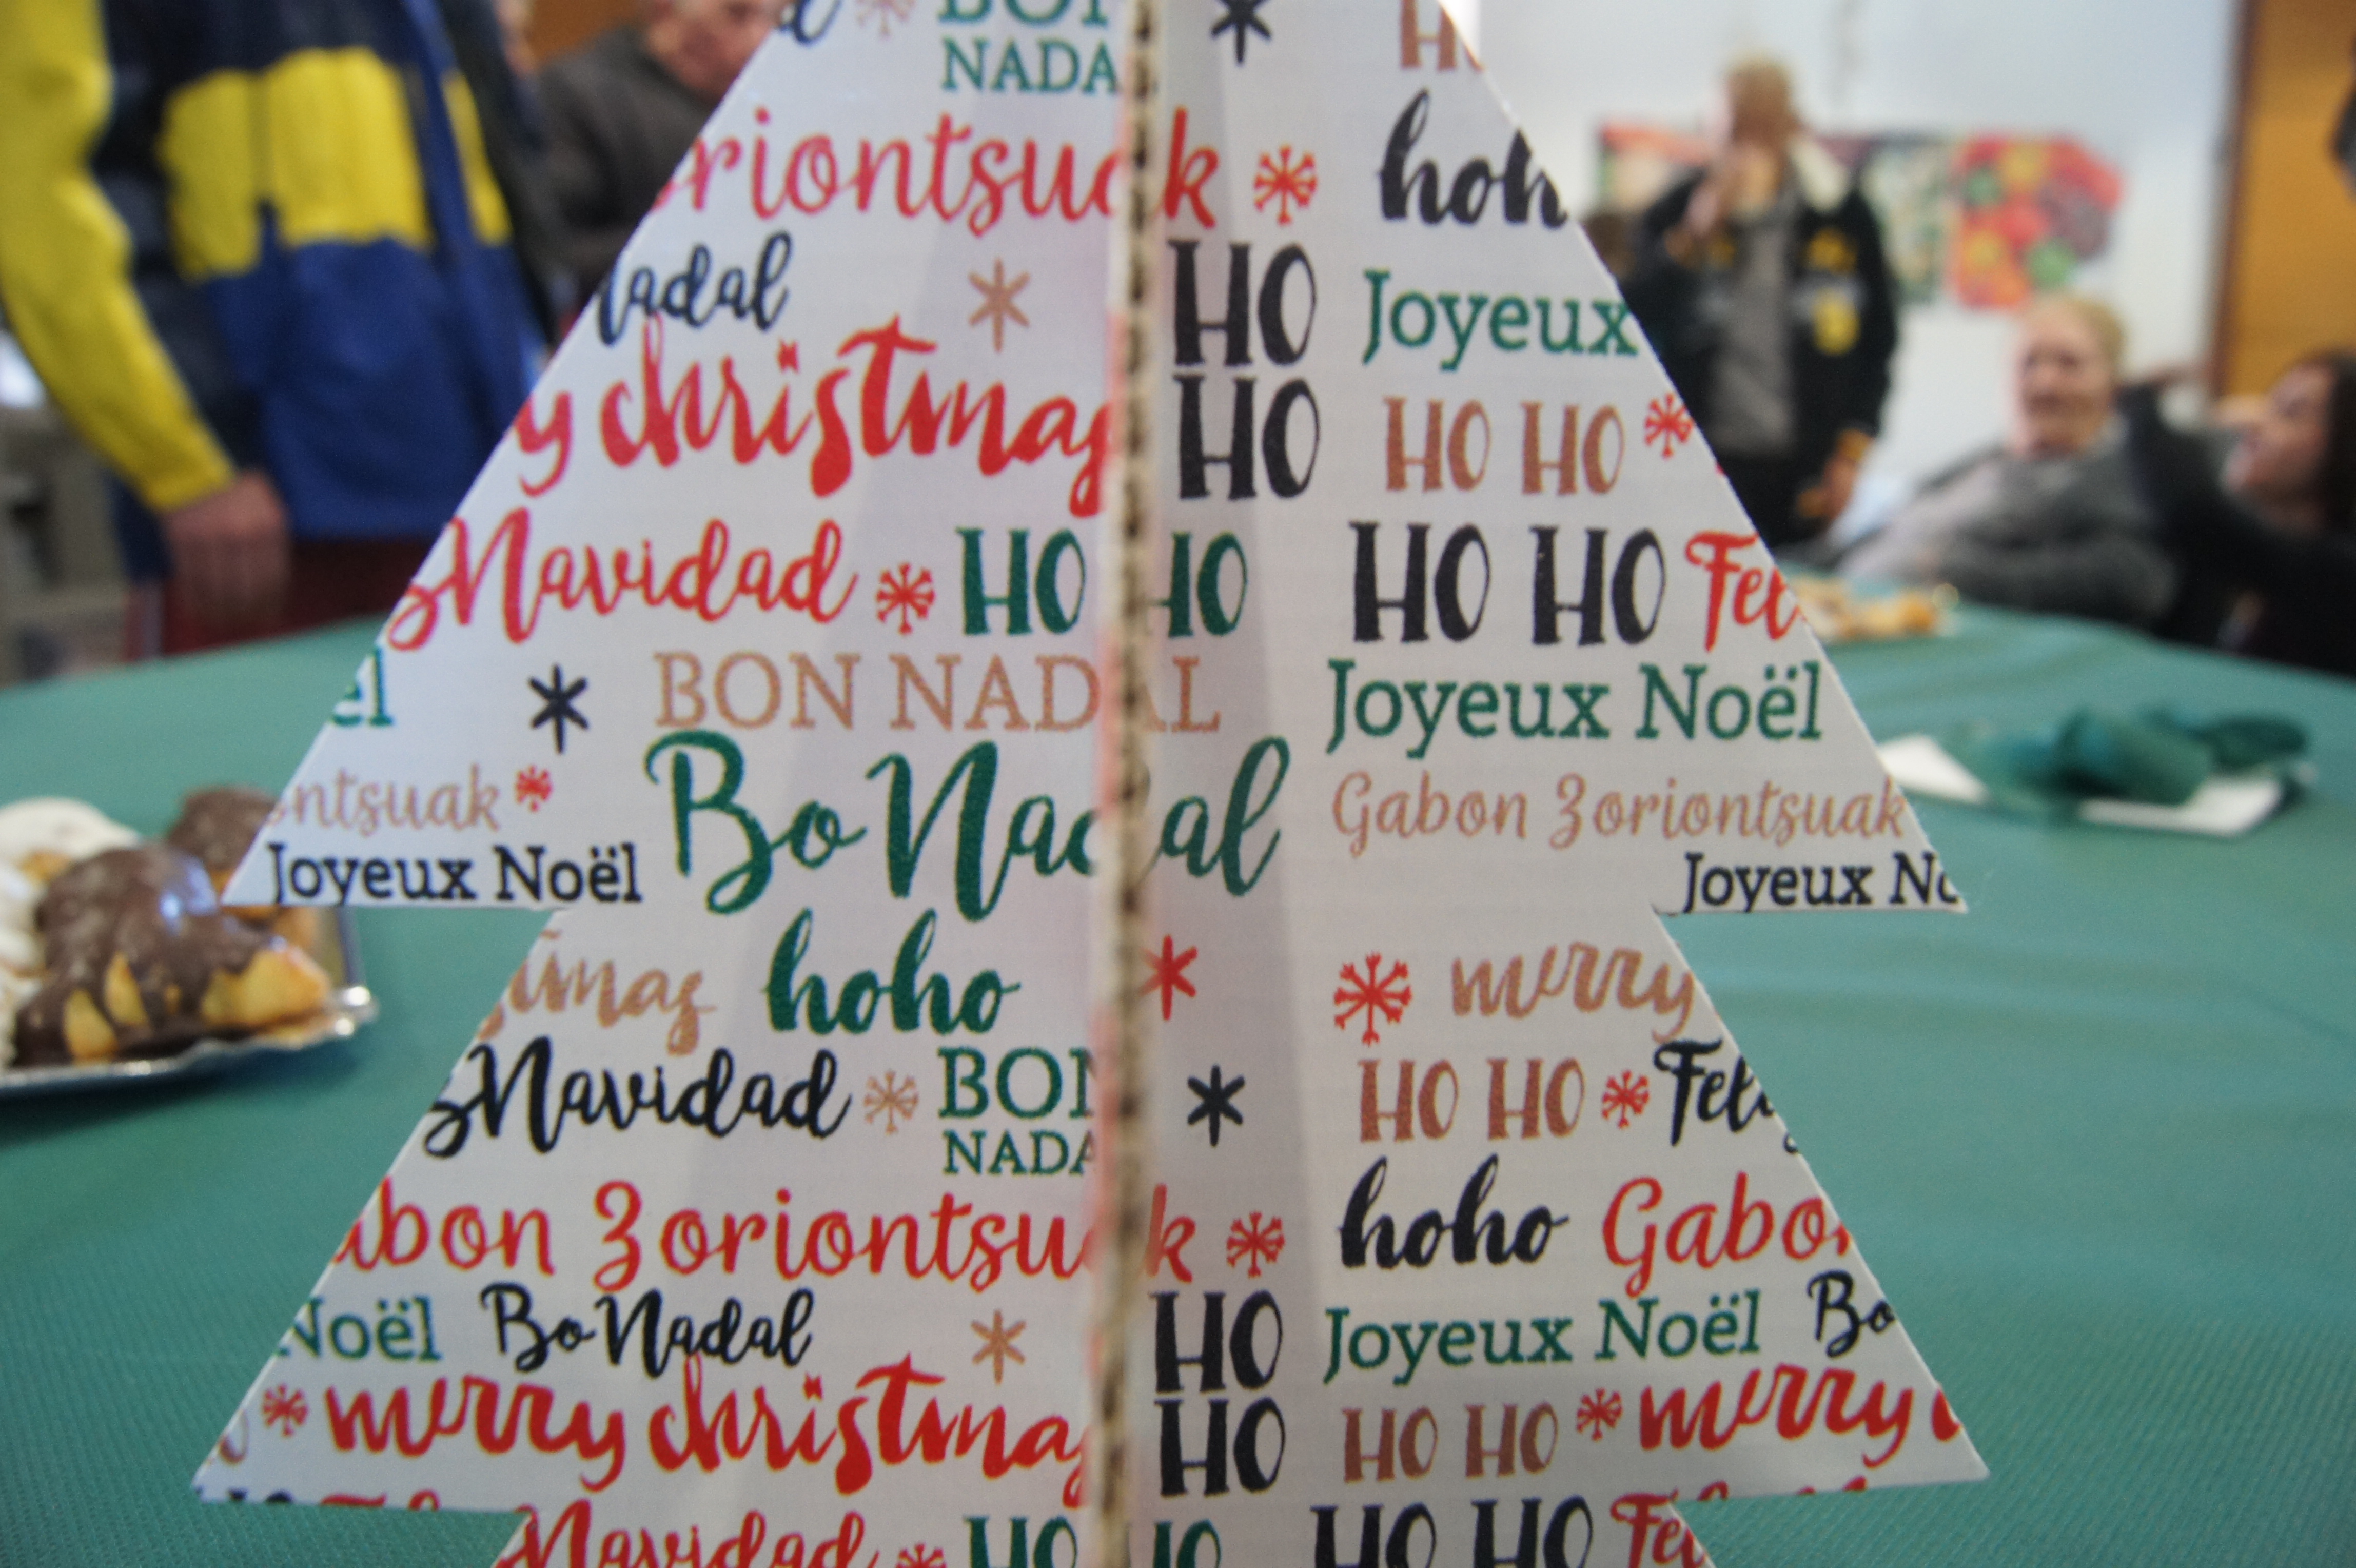 BON
NADA
oriontsuak
hoh
Nadal
HO
Joyeux
y christmas
HO
HO HO
sNavidad
HO HO
HO HO
Fel
ël
BON NADAL
Joyeux Noël
Bo Nadal
ontsuak
Gabon Zoriontsuak
Joyeux Noël
Joyeux No
hoho
merry
sNavidad
BON
NADA
HO HO
Feli
abon Zoriontsuak
hoho
Gabon
Noël
Bo Nadal
HO
Joyeux Noël
Bo
merry christmas
HO
HO HO
merry
Navidad
HO HO
HO HO
Fel